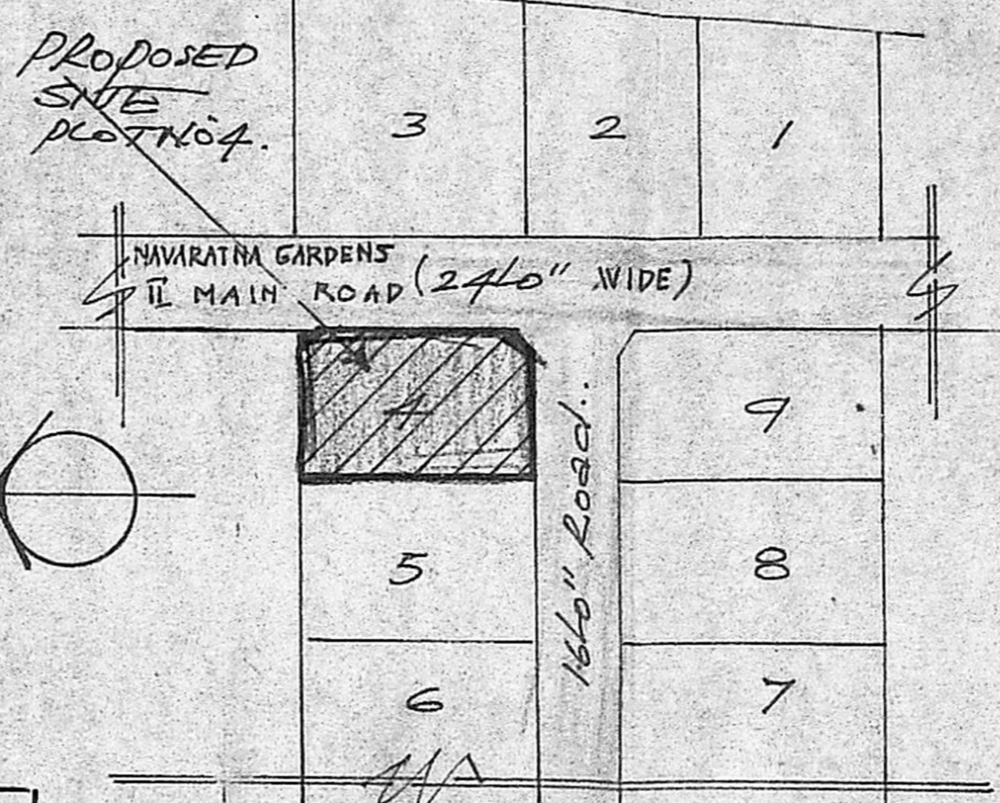 PROPOSED
SITE
PLOT NO4.
3
2
1
NAVARATNA GARDENS
II MAIN ROAD (24'-0" WIDE)
4
9
16'-0" Road.
5
8
6
7